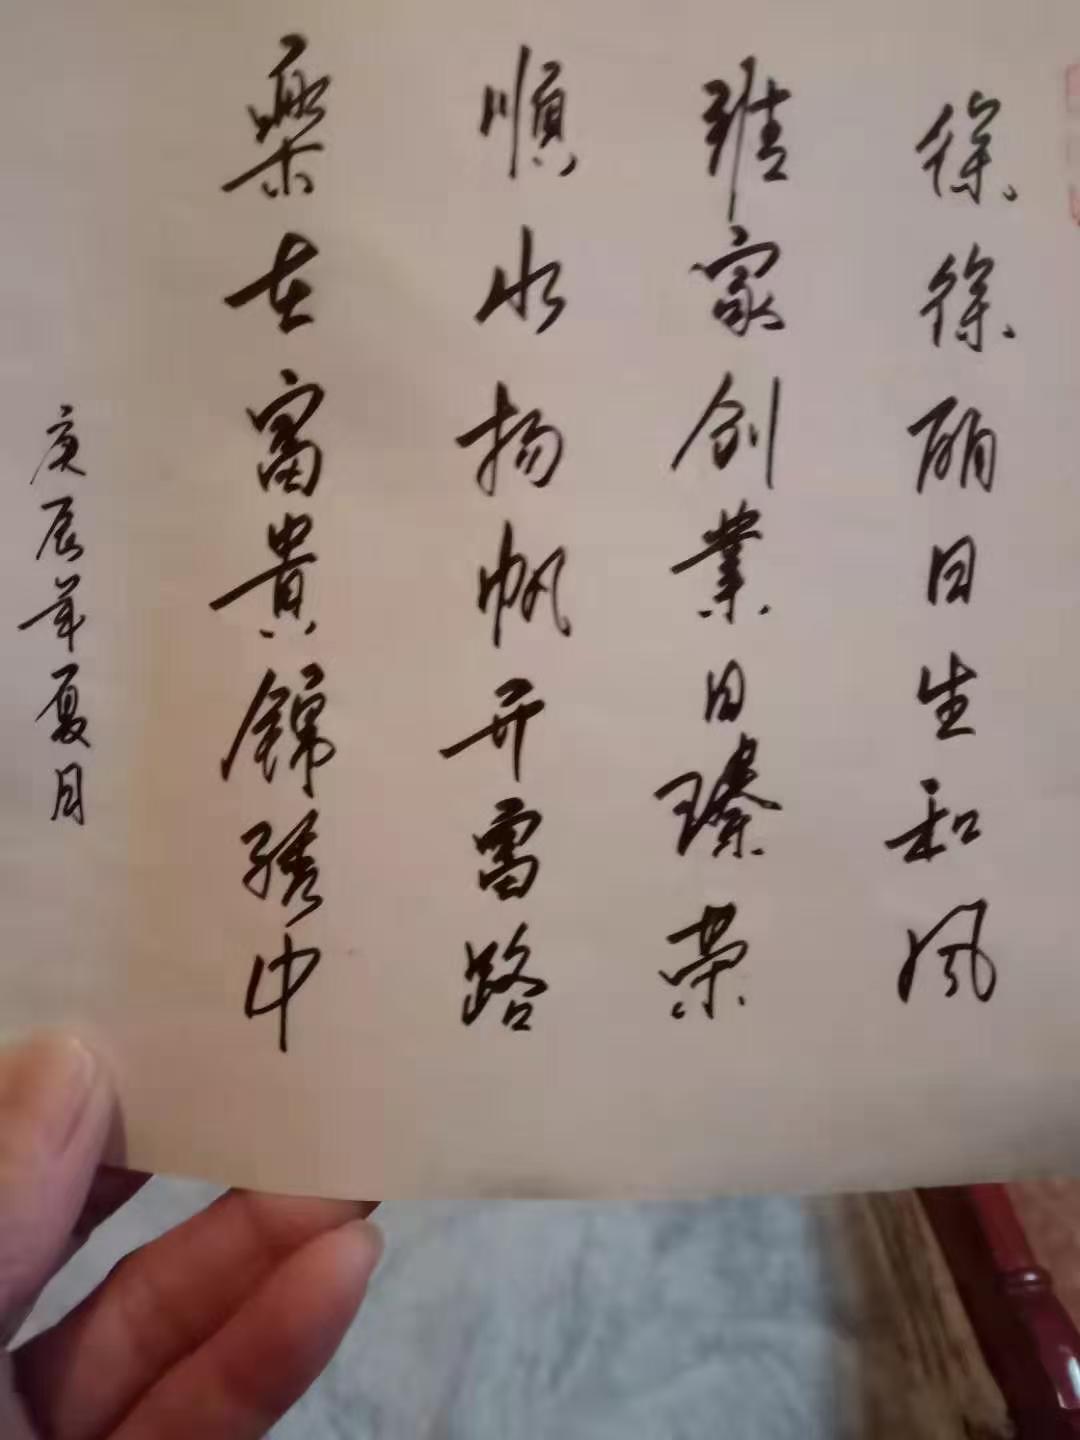 徐徐丽日生和风
家创業日瑧荣
順水扬帆开富路
樂在富貴錦绣中
庚辰年夏月